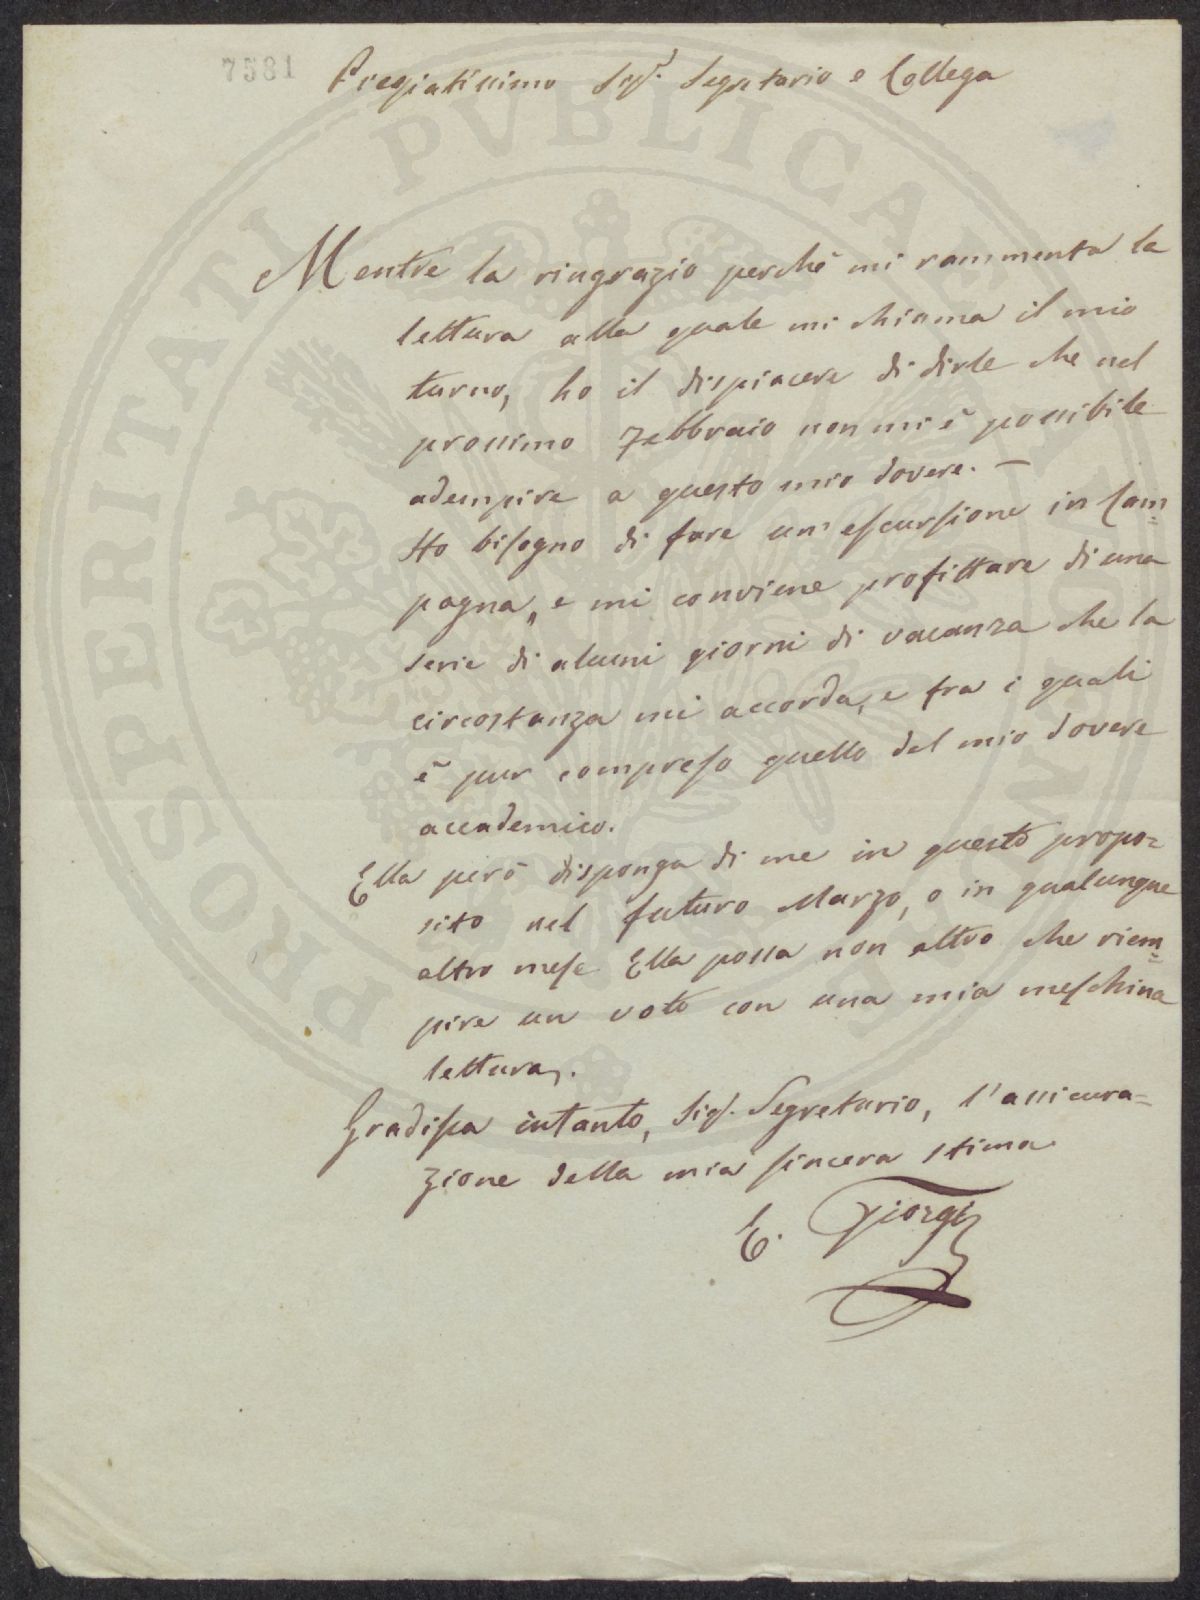 7581
Pregiatissimo Sig.r Segretario e Collega
Mentre la ringrazio perchè mi rammenta la
lettura alla quale mi chiama il mio
turno, ho il dispiacere di dirle che nel
prossimo Febbraio non mi è possibile
adempire a questo mio dovere. —
Ho bisogno di fare un' escursione in Cam=
pagna, e mi conviene profittare di una
serie di alcuni giorni di vacanza che la
circostanza mi accorda, e fra i quali
è pur compreso quello del mio dovere
accademico.
Ella però disponga di me in questo propo=
sito nel futuro Marzo, o in qualunque
altro mese Ella possa non altro che riem=
pire un voto con una mia meschina
lettura.
Gradisca intanto, Sig. Segretario, l'assicura=
zione della mia sincera stima
E. Giorgi
PROSPERITATI PVBLICAE